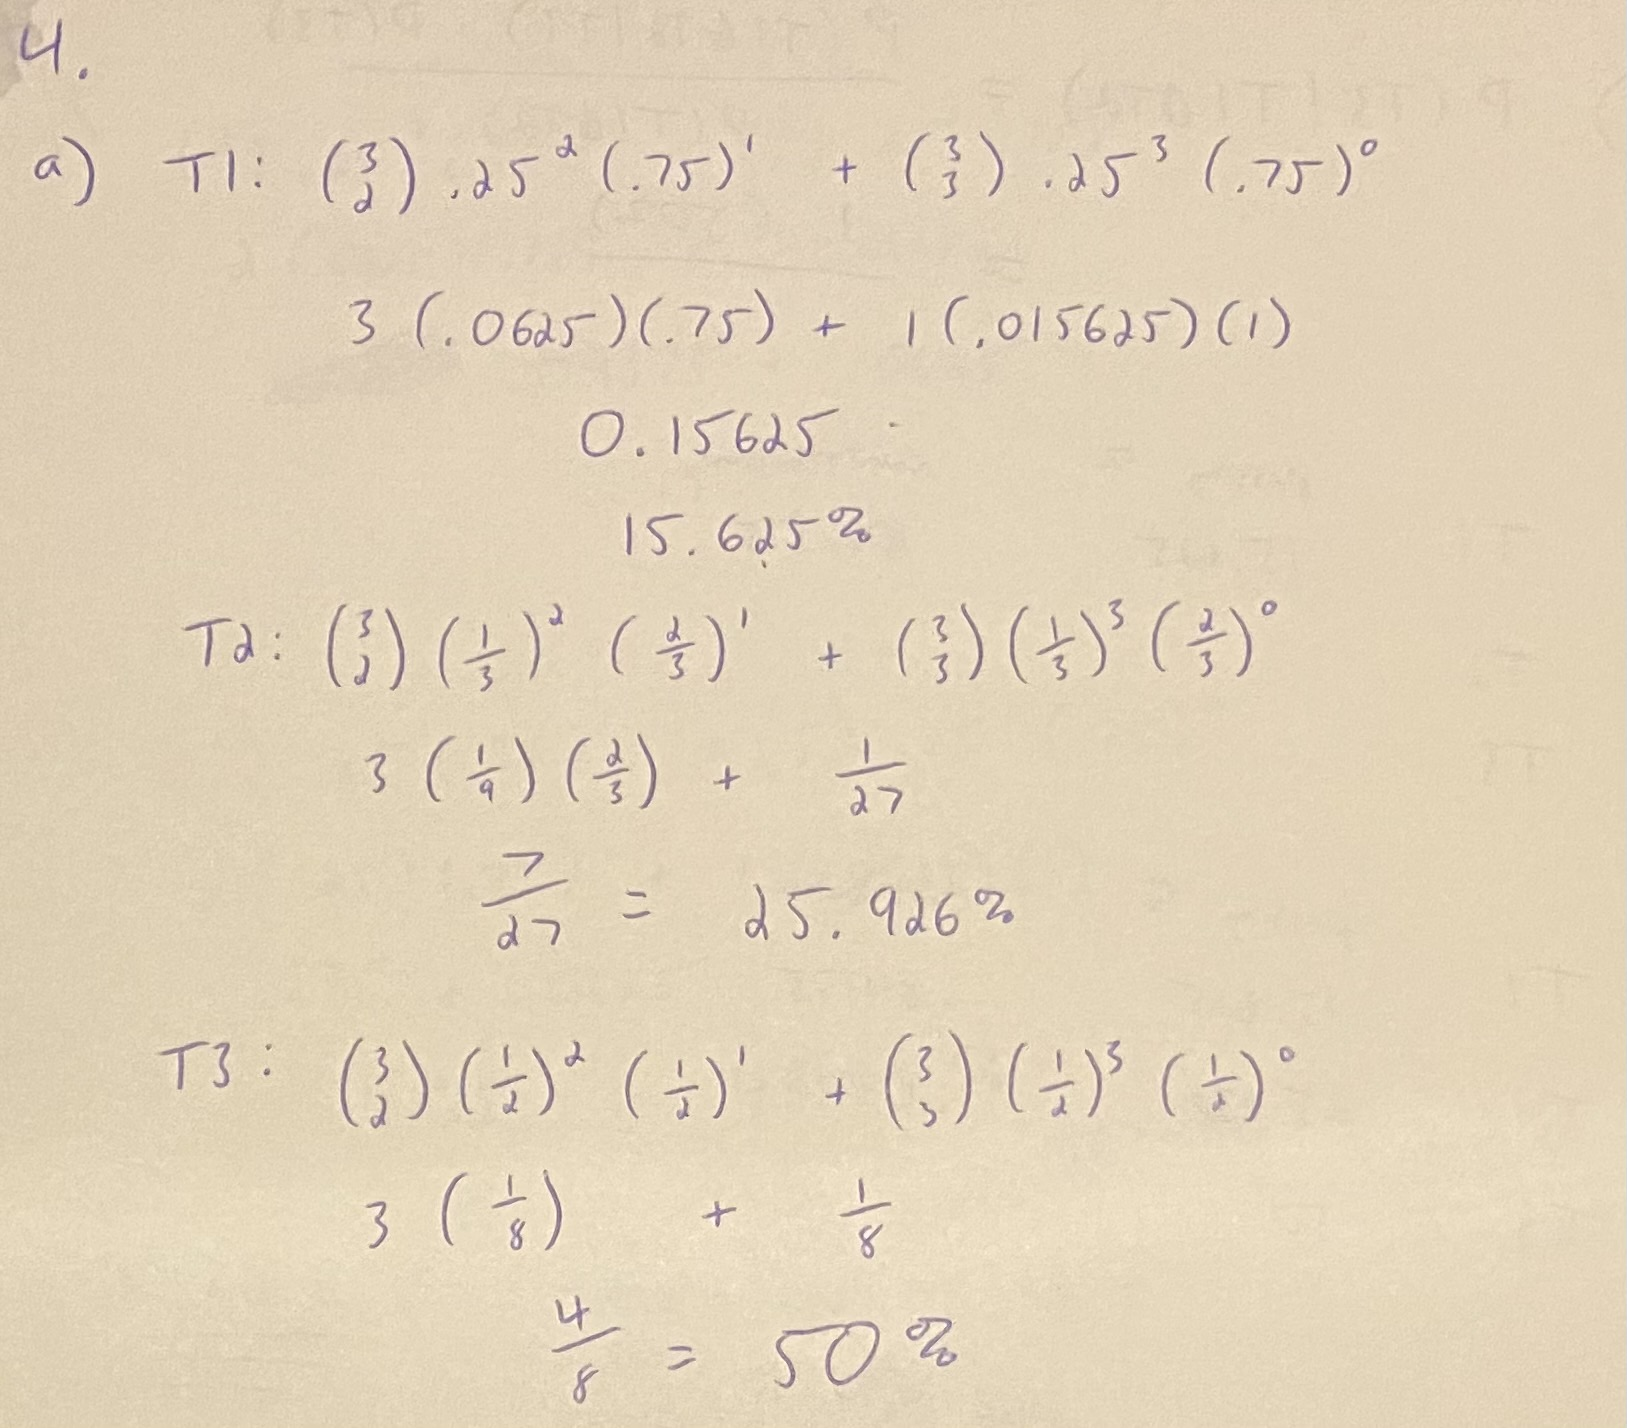 4.
a) T1: (3 2) .25² (.75)¹ + (3 3) .25³ (.75)⁰
3 (.0625)(.75) + 1(.015625)(1)
0.15625
15.625%
T2: (3 2) (1/3)² (2/3)¹ + (3 3) (1/3)³ (2/3)⁰
3 (1/9) (2/3) + 1/27
7/27 = 25.926%
T3: (3 2) (1/2)² (1/2)¹ + (3 3) (1/2)³ (1/2)⁰
3 (1/8) + 1/8
4/8 = 50%